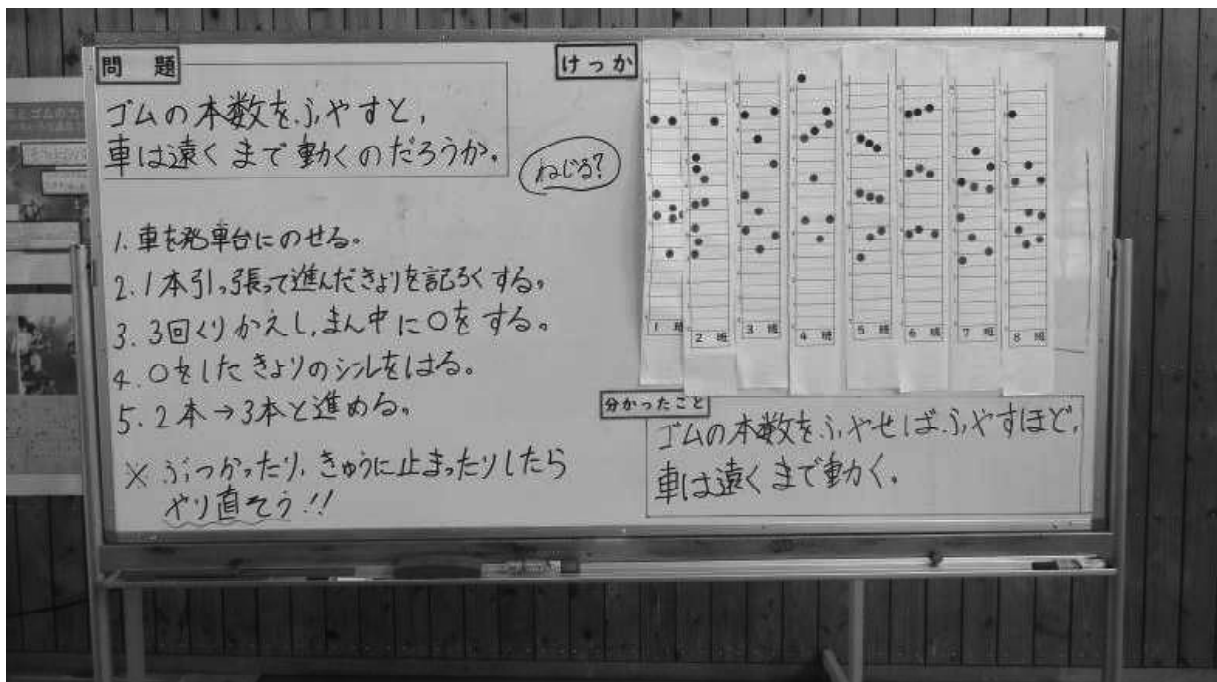 問 題
ゴムの本数をふやすと,
車は遠くまで動くのだろうか。
ねじる?
1. 車を発車台にのせる。
2. 1本引っ張って進んだきょりを記ろくする。
3. 3回くりかえし,まん中に○をする。
4. ○をしたきょりのシールをはる。
5. 2本→3本と進める。
※ ぶつかったり,きゅうに止まったりしたら
やり直そう!!
けっか
1 班
2 班
3 班
4 班
5 班
6 班
7 班
8 班
分かったこと
ゴムの本数をふやせばふやすほど,
車は遠くまで動く。